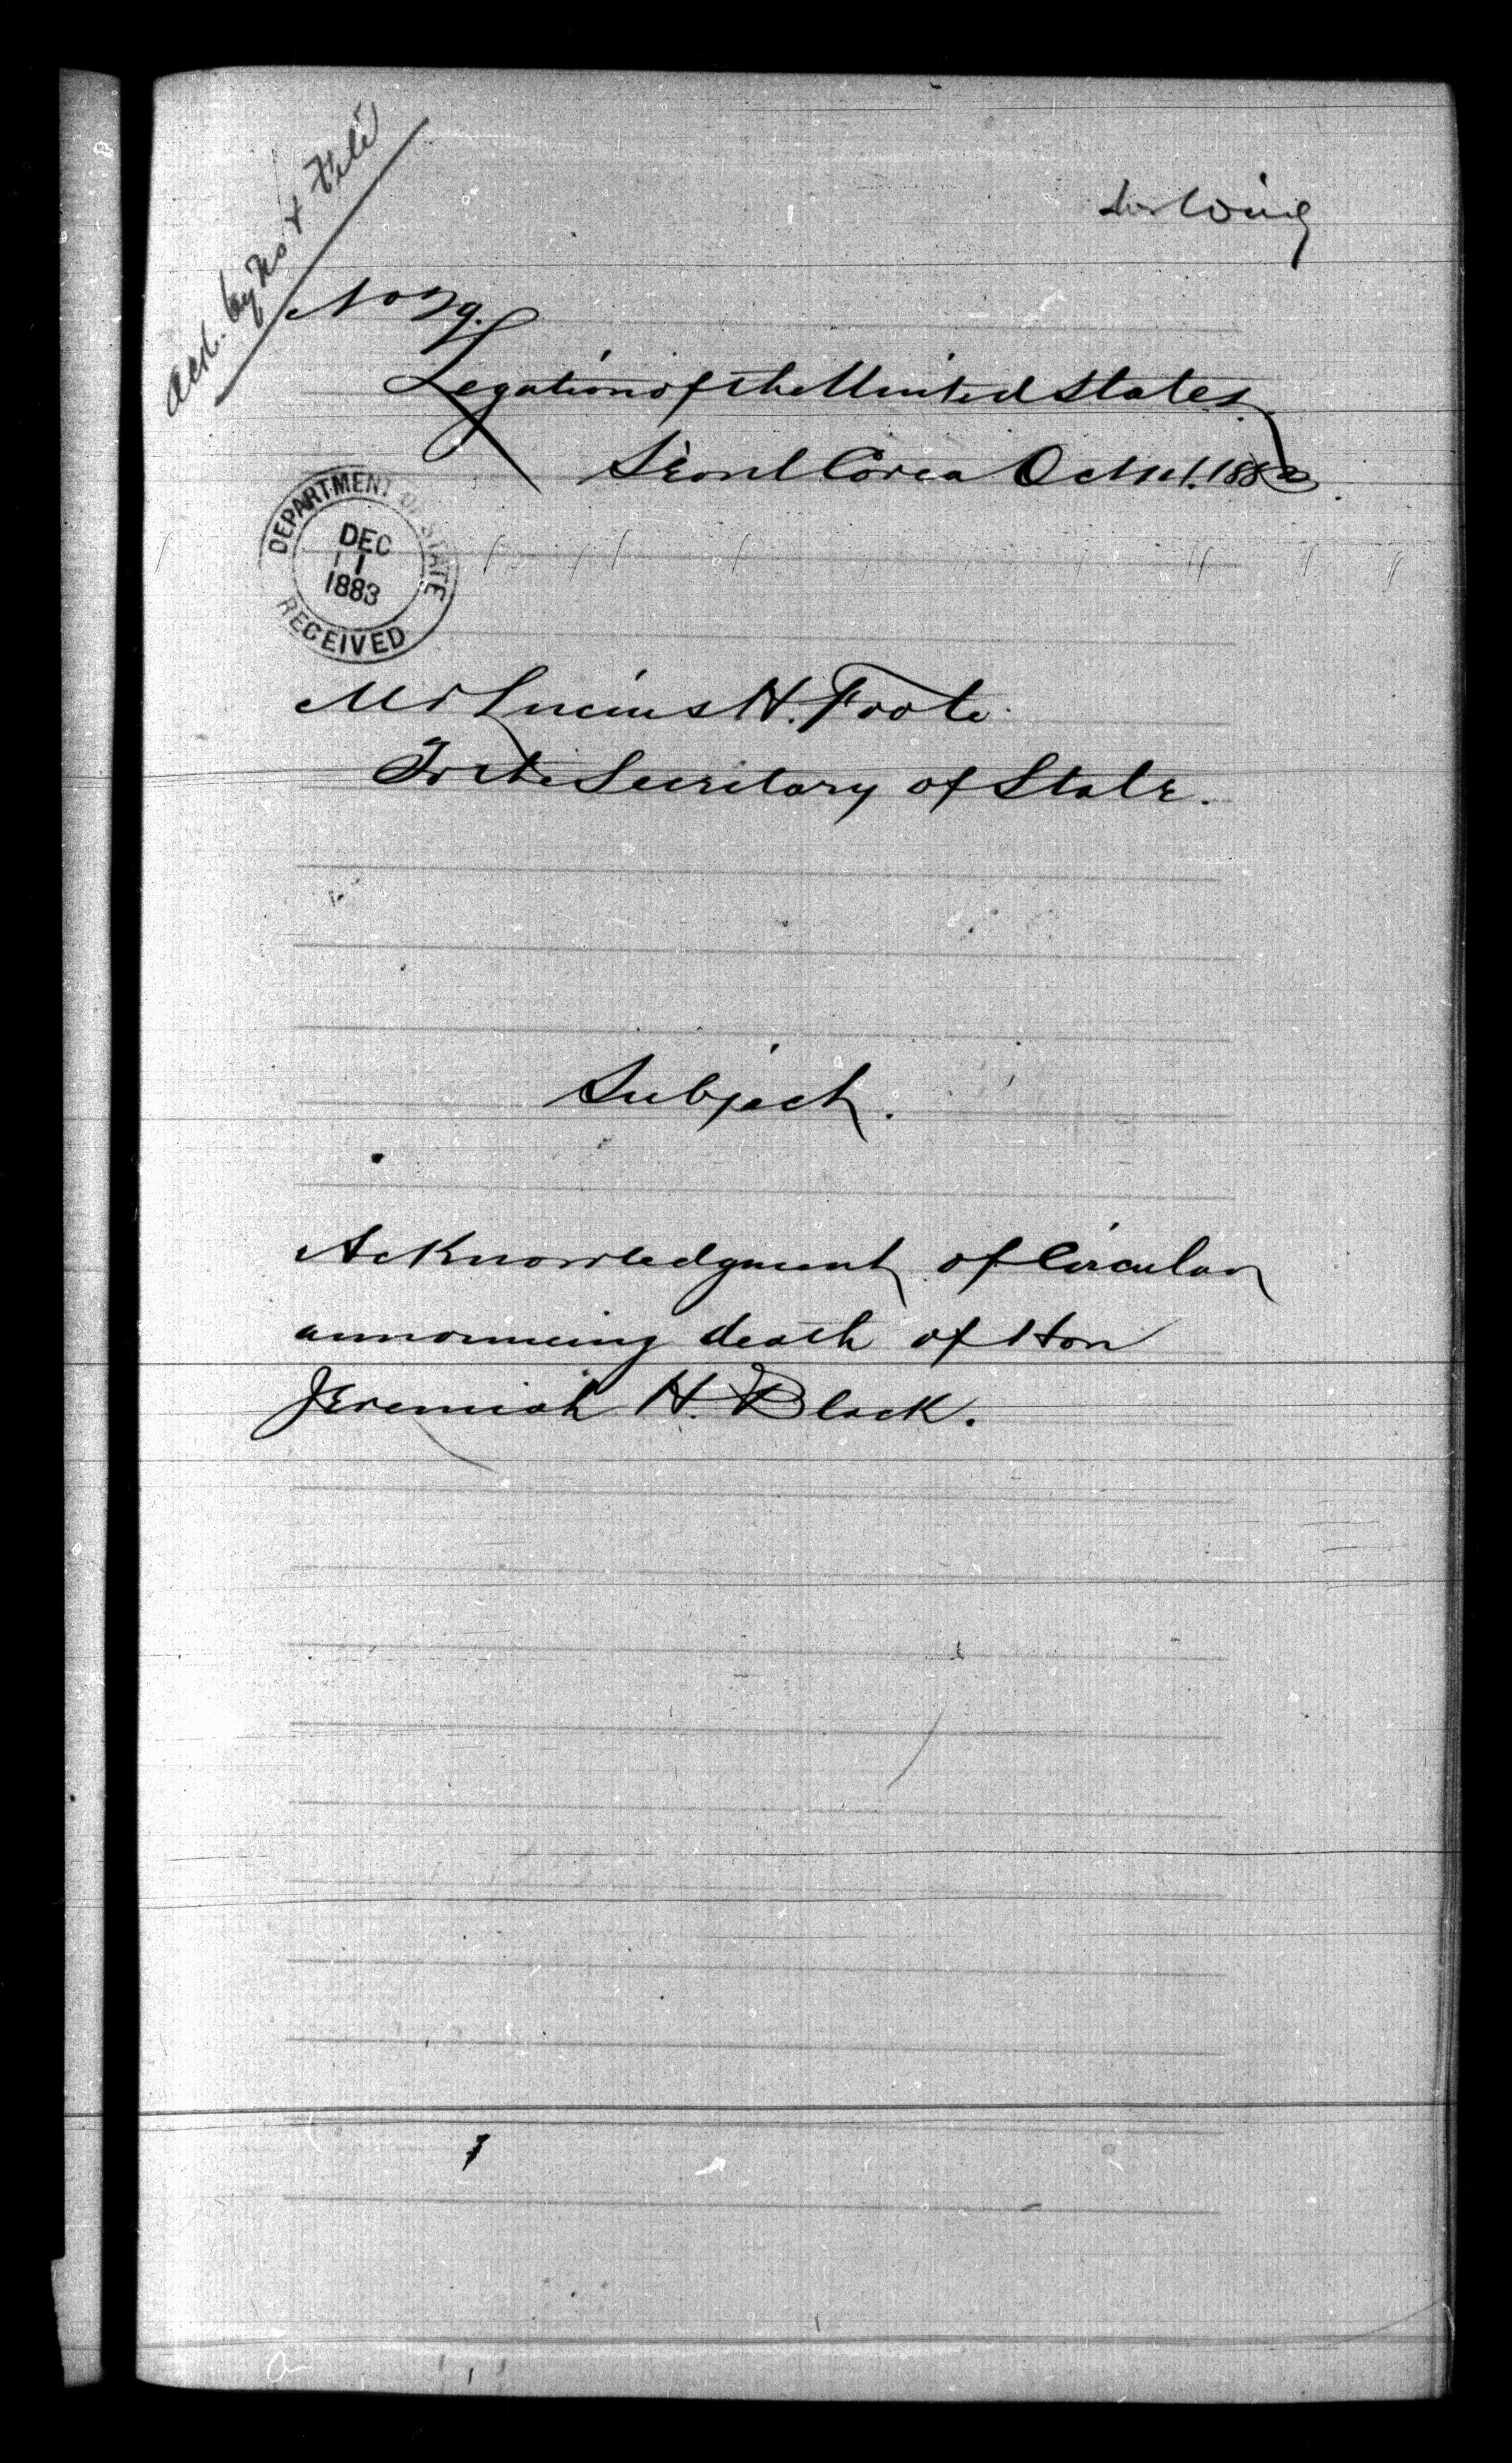 Ack. by No & File
No 29.
Legation of the United States
Seoul Corea Oct 1883.
DEPARTMENT OF STATE
DEC
11
1883
RECEIVED
Mr Lucius H. Foote
To the Secretary of State.
Subject.
Acknowledgment of Circular
announcing death of Hon
Jeremiah H. Black.